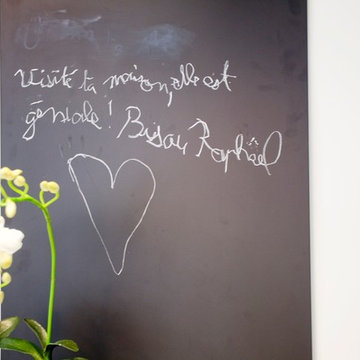 Visite ta maison, elle est
géniale! Bisou Raphaël